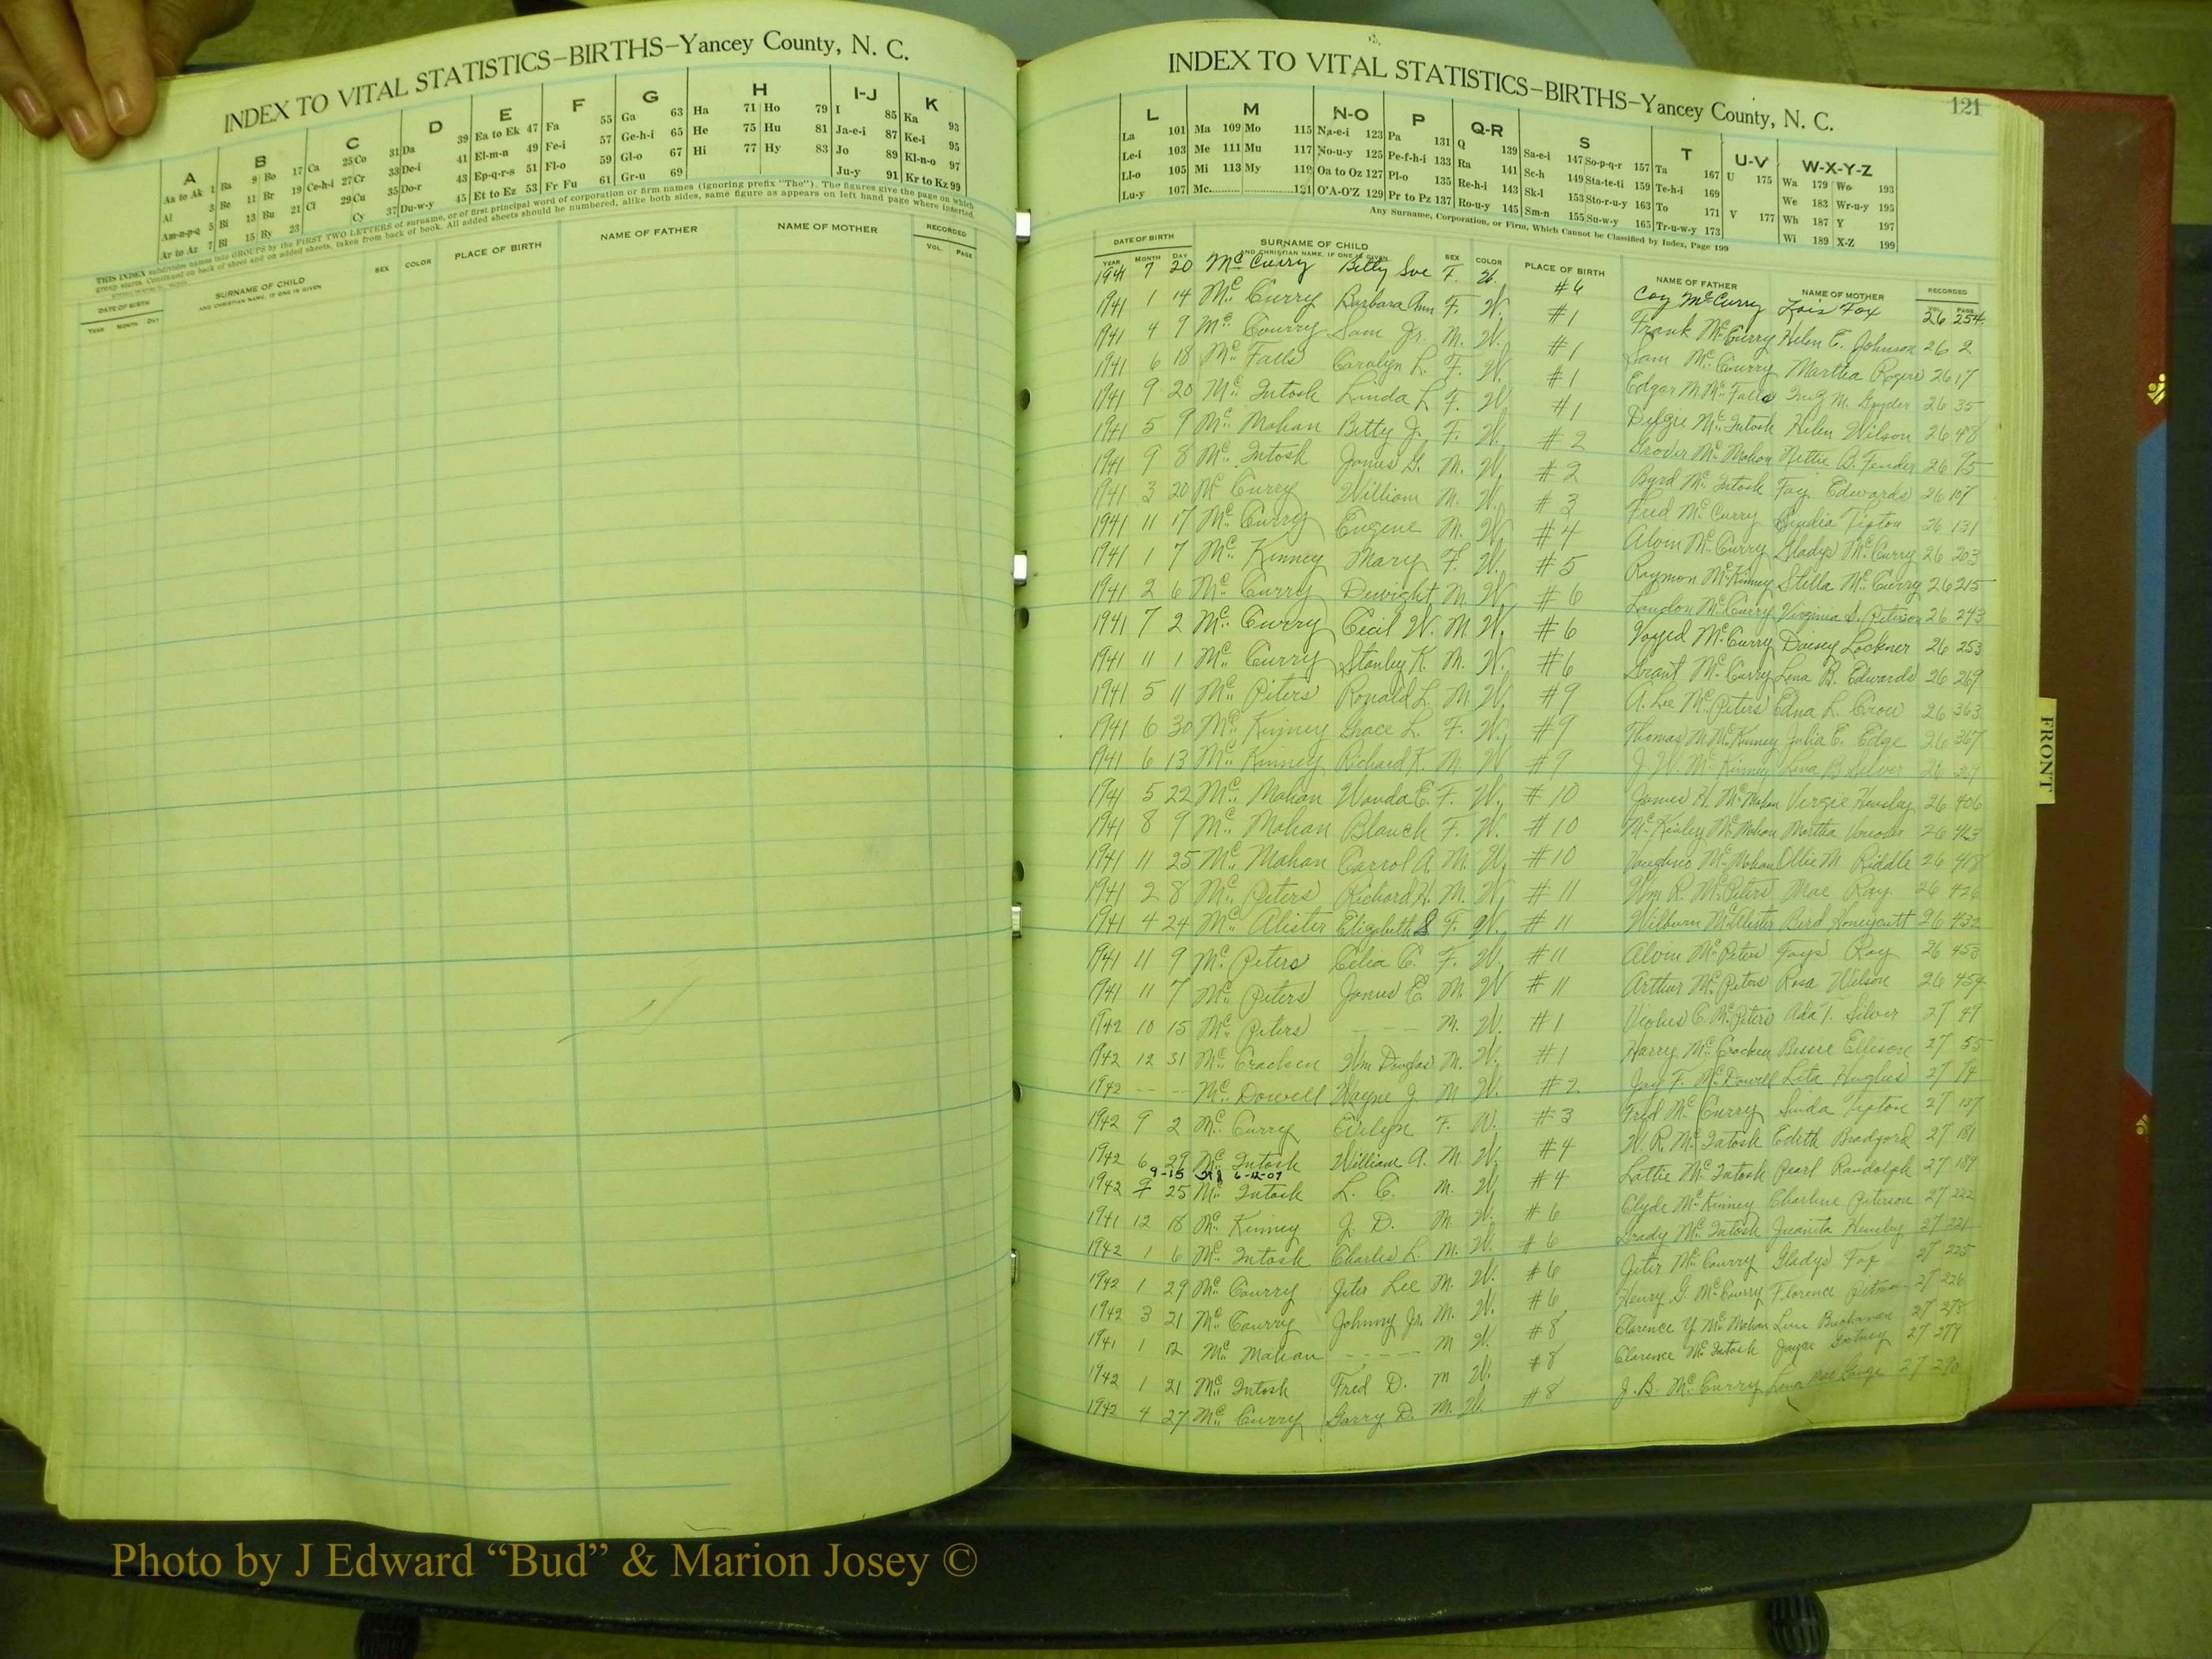 INDEX TO VITAL STATISTICS—BIRTHS—Yancey County, N. C.
A B C D E F G H I-J K
Aa to Ak 1 Ba 9 Bo 17 Ca 25 Co 31 Da 39 Ea to Ek 47 Fa 55 Ga 63 Ha 71 Ho 79 I 85 Ka 93
Al 3 Be 11 Br 19 Ce-h-i 27 Cr 33 De-i 41 El-m-n 49 Fe-i 57 Ge-h-i 65 He 75 Hu 81 Ja-e-i 87 Ke-i 95
Am-n-p-q 5 Bi 13 Bu 21 Cl 29 Cu 35 Do-r 43 Ep-q-r-s 51 Fl-o 59 Gl-o 67 Hi 77 Hy 83 Jo 89 Kl-n-o 97
Ar to Az 7 Bl 15 By 23 Cy 37 Du-w-y 45 Et to Ez 53 Fr Fu 61 Gr-u 69 Ju-y 91 Kr to Kz 99
THIS INDEX subdivides names into GROUPS by the FIRST TWO LETTERS of surname, or of first principal word of corporation or firm names (ignoring prefix "The"). The figures give the page on which
group starts. Continued on back of sheet and on added sheets, taken from back of book. All added sheets should be numbered, alike both sides, same figure as appears on left hand page where inserted.
DATE OF BIRTH SURNAME OF CHILD SEX COLOR PLACE OF BIRTH NAME OF FATHER NAME OF MOTHER RECORDED
YEAR MONTH DAY AND CHRISTIAN NAME, IF ONE IS GIVEN VOL. PAGE
INDEX TO VITAL STATISTICS—BIRTHS—Yancey County, N. C.
121
L M N-O P Q-R S T U-V W-X-Y-Z
La 101 Ma 109 Mo 115 Na-e-i 123 Pa 131 Q 139 Sa-e-i 147 So-p-q-r 157 Ta 167 U 175 Wa 179 Wo 193
Le-i 103 Me 111 Mu 117 No-u-y 125 Pe-f-h-i 133 Ra 141 Sc-h 149 Sta-te-ti 159 Te-h-i 169 We 183 Wr-u-y 195
Ll-o 105 Mi 113 My 119 Oa to Oz 127 Pl-o 135 Re-h-i 143 Sk-l 153 Sto-r-u-y 163 To 171 V 177 Wh 187 Y 197
Lu-y 107 Mc 121 O'A-O'Z 129 Pr to Pz 137 Ro-u-y 145 Sm-n 155 Su-w-y 165 Tr-u-w-y 173 Wi 189 X-Z 199
Any Surname, Corporation, or Firm, Which Cannot be Classified by Index, Page 199
DATE OF BIRTH SURNAME OF CHILD SEX COLOR PLACE OF BIRTH NAME OF FATHER NAME OF MOTHER RECORDED
YEAR MONTH DAY AND CHRISTIAN NAME, IF ONE IS GIVEN
1941 7 20 McCurry Betty Sue F. W. #6 Coy McCurry Lois Fox 26 254
1941 1 14 Mc Curry Barbara Ann F. W. #1 Frank McCurry Helen E. Johnson 26 2
1941 4 9 Mc Courry Sam Jr. M. W. #1 Sam Mc Courry Martha Rogers 26 17
1941 6 18 Mc Falls Carolyn L. F. W. #1 Edgar M. Mc Falls M. Snyder 26 35
1941 9 20 Mc Intosh Linda L F. W #1 Mc Intosh Helen Wilson 26 48
1941 5 9 Mc Mahan Betty J. F. W. #2 Grover Mc Mahan Nettie B. Fender 26 95
1941 9 8 Mc Intosh James G. M. W. #2 Byrd Mc Intosh Fay Edwards 26 107
1941 3 20 Mc Curry William M. W. #3 Fred McCurry Tipton 26 131
1941 11 17 Mc Curry Eugene M. W. #4 Alvin McCurry Gladys McCurry 26 203
1941 1 7 Mc Kinney Mary F. W. #5 Raymon McKinney Stella McCurry 26 215
1941 2 6 Mc Curry Dewight M W #6 Landon McCurry Virginia S. Peterson 26 243
1941 7 2 Mc Curry Cecil W. M. W. #6 McCurry Daisey Lockner 26 253
1941 11 1 Mc Curry Stanley K. M. W. #6 Grant McCurry Lena B. Edwards 26 269
1941 5 11 Mc Peters Ronald L. M W. #9 A. Lee McPeters Edna L. Crow 26 363
1941 6 30 Mc Kinney Grace L. F. W. #9 Thomas M. McKinney Julia E. Edge 26 367
1941 6 13 Mc Kinney Richard K. M. W #9 J. W. Mc Kinney Lena B Silver 26
1941 5 22 Mc Mahan Wanda E. F. W. #10 James H. McMahan Vergie Hensley 26 406
1941 8 9 Mc Mahan Blanch F. W. #10 McKinley McMahan Martha 26 413
1941 11 25 Mc Mahan Carrol A. M. W. #10 McMahan Ollie M Riddle 26 418
1941 2 8 Mc Peters Richard H. M. W. #11 Wm R. McPeters Mae Ray 26 426
1941 4 24 Mc Alister Elizabeth S F. W. #11 Wilburn McAlister Bird Honeycutt 26 432
1941 11 9 Mc Peters Celia C. F. W. #11 Alvin McPeters Faye Ray 26 453
1941 11 7 Mc Peters James E. M. W #11 Arthur McPeters Rosa Wilson 26 454
1942 10 15 Mc Peters - - - M. W. #1 C. McPeters Ada T. Silver 27 49
1942 12 31 Mc Cracken Wm Douglas M. W. #1 Harry McCracken Bessie Ellison 27 55
1942 -- -- Mc Dowell Wayne J. M W. #2 Jay F. McDowell Leta Hughes 27
1942 9 2 Mc Curry Evelyn F. W. #3 Fred Mc Curry Tipton 27 137
1942 6 29 Mc Intosh William A. M W. #4 W. R. McIntosh Edith Bradford 27 181
9-15 6-12-07
1942 25 Mc Intosh L. C. M. W #4 Lattie Mc Intosh Pearl Randolph 27 189
1941 12 18 Mc Kinney J. D. M W. #6 Clyde McKinney Charline Peterson 27 222
1942 1 6 Mc Intosh Charles L. M. W. #6 Grady Mc Intosh Juanita Hensley 27 221
1942 1 29 Mc Courry Jeter Lee M. W. #6 Jeter McCourry Gladys Fox 27 225
1942 3 21 Mc Courry Johnny Jr. M. W. #6 Henry G. McCourry Florence 27 226
1941 1 12 Mc Mahan - - - - - M W. #8 Clarence Y McMahan Buchanan 27 278
1942 1 21 Mc Intosh Fred D. M W. #8 Clarence McIntosh 27 279
1942 4 27 Mc Curry Garry D. M. W. #8 J. B. McCurry Lena Mae 27 290
FRONT
Photo by J Edward “Bud” & Marion Josey ©